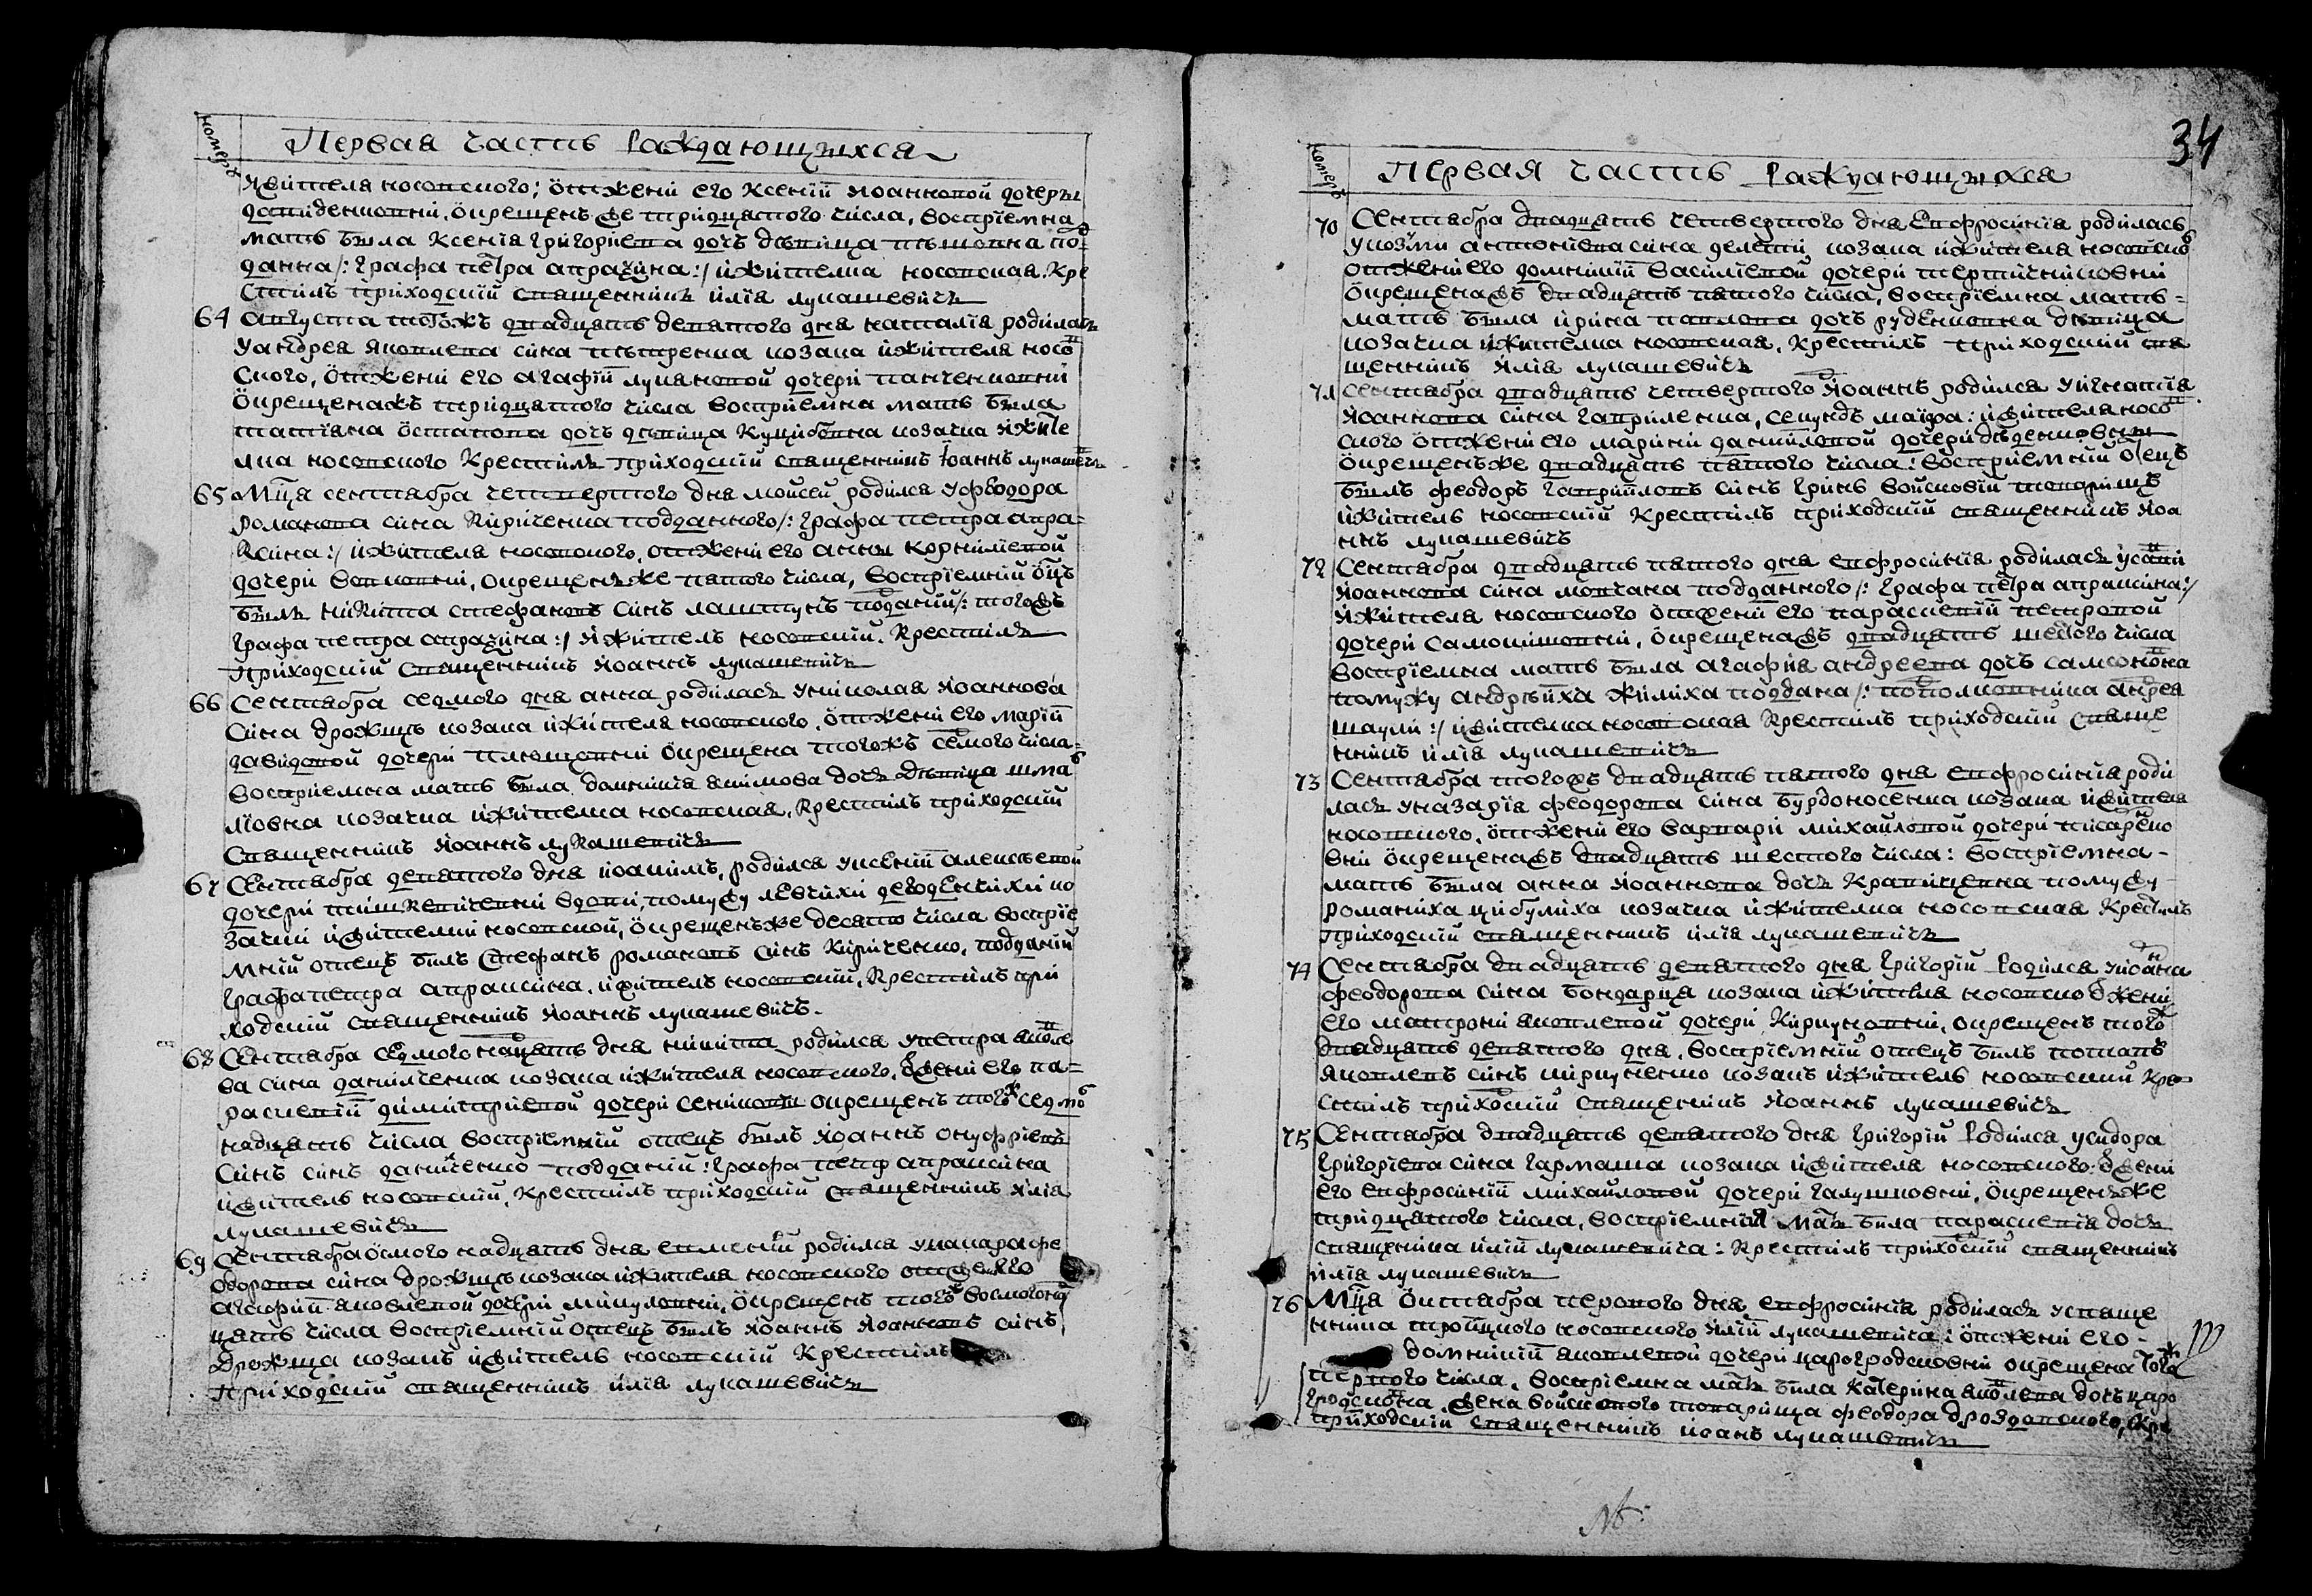 номеръ
Первая часть раждающыхся
жителя носовского; отжени его Ксении Иоанновой дочеры
давиденковни, окрещенъ же тридцатого числа, восприемна
мать была Ксениа Григориева дочъ девица под
данна /: графа петра апраѯина :/ и жителка носовская. Кре
стилъ приходский священникъ илиа лукашевичъ
64 августа тогожъ двадцать девятого дня наталиа родилась
у андреа яковлева сина петренка козака и жителя носов
ского, отжени его агафии лукяновой дочери панченковни
окрещенажъ тридцатого числа восприемна мать была
татиана остапова дочъ девица Куцубовна козачка и жите
лка носовского Крестилъ приходский священникъ Иоаннъ лукашевичъ
65 Мця сентабра четвертого дня мойсей родился у феодора
романова сина Кириченка подданного /: графа петра апра
ксина :/ и жителя носовского, отжени его анны Корнилиевой
дочери вовковни, окрещенъ же пятого числа, восприемний оцъ
былъ никита стефановъ синъ лаштунъ подданий /: тогожъ
графа петра апраѯина :/ и житель носовский. Крестилъ
приходский священникъ Иоаннъ лукашевичъ
66 Сентабра седмого дня анна родилась у николая Иоаннова
сина дрожжъ козака и жителя носовского, отжени его марии
давидовой дочери окрещена тогожъ седмого числа
восприемна мать была домникиа акимова дочъ девица шма
ловна козачка и жителка носовская, Крестилъ приходский
священникъ Иоаннъ лукашевичъ
67 Сентабра девятого дня иоакимъ, родился у ксении алексеевой
дочери вдови, по мужу левчихи ко
зачки и жителки носовской, окрещенъ же десято числа восприе
мний отецъ билъ стефанъ романовъ синъ Кириченко, подданий
графа петра апраксина, и житель носовский, Крестилъ при
ходский священникъ Иоаннъ лукашевичъ.
68 Сентабра седмогонадцать дня никита родился у петра яковле
ва сина данилченка козака и жителя носовского, отжени его па
раскевии димитриевой дочери сенковни окрещенъ тогожъ седмого
надцать числа восприемний отецъ былъ Иоаннъ онуфриевъ
синъ синъ данилченко подданий : графа петр апраксина
и житель носовский, Крестилъ приходский священникъ Илиа
лукашевичъ
69 Сентабра осмогонадцать дня евмений родился у макара фе
одорова сина дрожжъ козака и жителя носовского отжени его
агафии яковлевой дочери микуловни, окрещенъ тогожъ восмогонад
цать числа восприемний отецъ былъ Иоаннъ Иоанновъ синъ
дрожжа козакъ и житель носовский Крестилъ
приходский священникъ илиа лукашевичъ
34
номеръ
Первая часть раждающыхся
70 Сентабра двадцать четвертого дня Евфросиниа родилась
у козми антониева сина козака и жителя носовского
отжени его домникии василиевой дочери
окрещенажъ двадцать пятого числа, восприемна мать
мать была ирина павлова дочъ руденковна девица
козачка и жителка носовская, Крестилъ приходский свя
щенникъ Илиа лукашевичъ
71 Сентабра двадцать четвертого Иоаннъ родился у игнатиа
Иоаннова сина гавриленка, секундъ маиора : и жителя носов
ского отжени его марини даниловой дочери
окрещенъ же двадцать пятого числа : восприемний отецъ
былъ феодоръ гавриловъ синъ гринъ войсковий товарищъ
и житель носовский Крестилъ приходский священникъ Иоа
ннъ лукашевичъ
72 Сентабра двадцать пятого дня евфросиниа родилась у савви
Иоаннова сина мовчана подданного /: графа петра апраксина :/
и жителя носовского отжени его параскевии петровой
дочери, окрещенажъ двадцать шестого числа
восприемна мать была агафиа андреева дочъ самсоновна
по мужу андрѣиха жилиха поддана /: андреа
:/ и жителка носовская Крестилъ приходский свяще
нникъ илиа лукашевичъ
73 Сентабра тогожъ двадцать пятого дня евфросиниа роди
лась у назариа феодорова сина бурдоносенка козака и жителя
носовского, отжени его варвари михайловой дочери писаренко
вни окрещенажъ двадцать шестого числа : восприемна
мать была анна Иоаннова дочъ Кравцовна по мужу
романиха цибулиха козачка и жителка носовская Крестилъ
приходский священникъ илиа лукашевичъ
74 Сентабра двадцать девятого дня Григорий родился у иоанна
феодорова сина бондарца козака и жителя носовско отжени
его матрони яковлевой дочери Кирпуковни, окрещенъ тогожъ
двадцать девятого дня, восприемний отецъ былъ потапъ
яковлевъ синъ козакъ и житель носовский Кре
стилъ приходский священникъ Иоаннъ лукашевичъ
75 Сентабра двадцать девятого дня Григорий родился у сидора
Григориева сина гармаша козака и жителя носовского, отжени
его евфросинии михайловой дочери галушковни, окрещенъ же
тридцатого числа, восприемния мать била параскевиа дочъ
священника илии лукашевича : Крестилъ приходский священникъ
илиа лукашевичъ
76 Мця октабра первого дня евфросиниа родилась у свяще
нника троицкого носовского Илии лукашевича : отжени его
домникии яковлевой дочери царогродсковни окрещена тогожъ
первого числа, восприемна мать била Катерина яковлева дочъ царо
гродсковна, жена войскового товарища феодора дроздовского, Кре
приходский священникъ иоанъ лукашевичъ